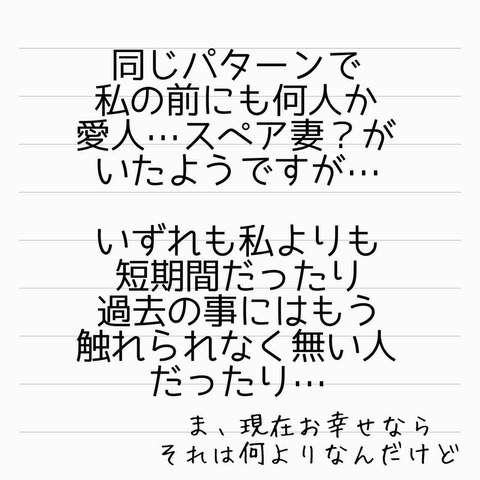 同じパターンで
私の前にも何人か
愛人…スペア妻？が
いたようですが…
いずれも私よりも
短期間だったり
過去の事にはもう
触れられなく無い人
だったり…
ま、現在お幸せなら
それは何よりなんだけど